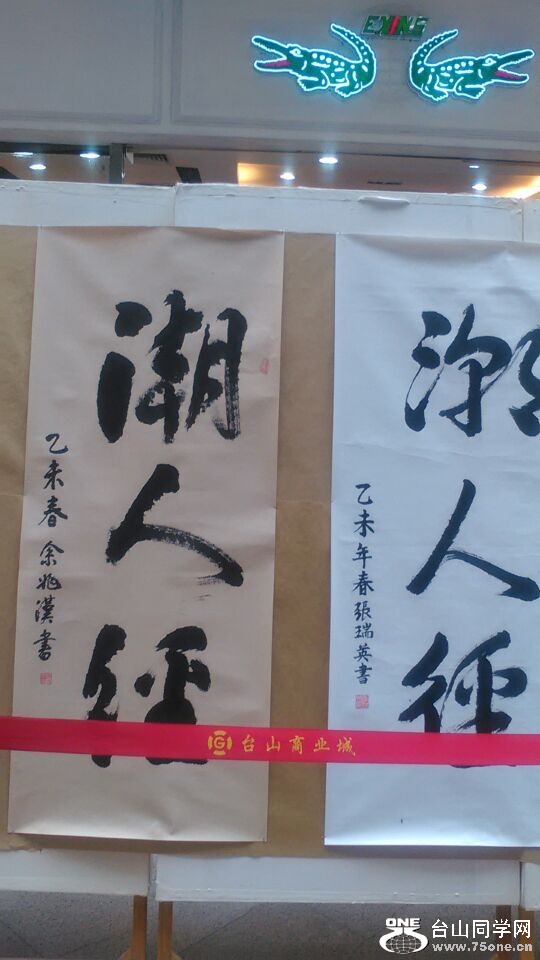 EXINE
潮人径
乙未春 余兆漢書
潮人径
乙未年春 張瑞英書
台山商业城
ONE
台山同学网
www.75one.cn